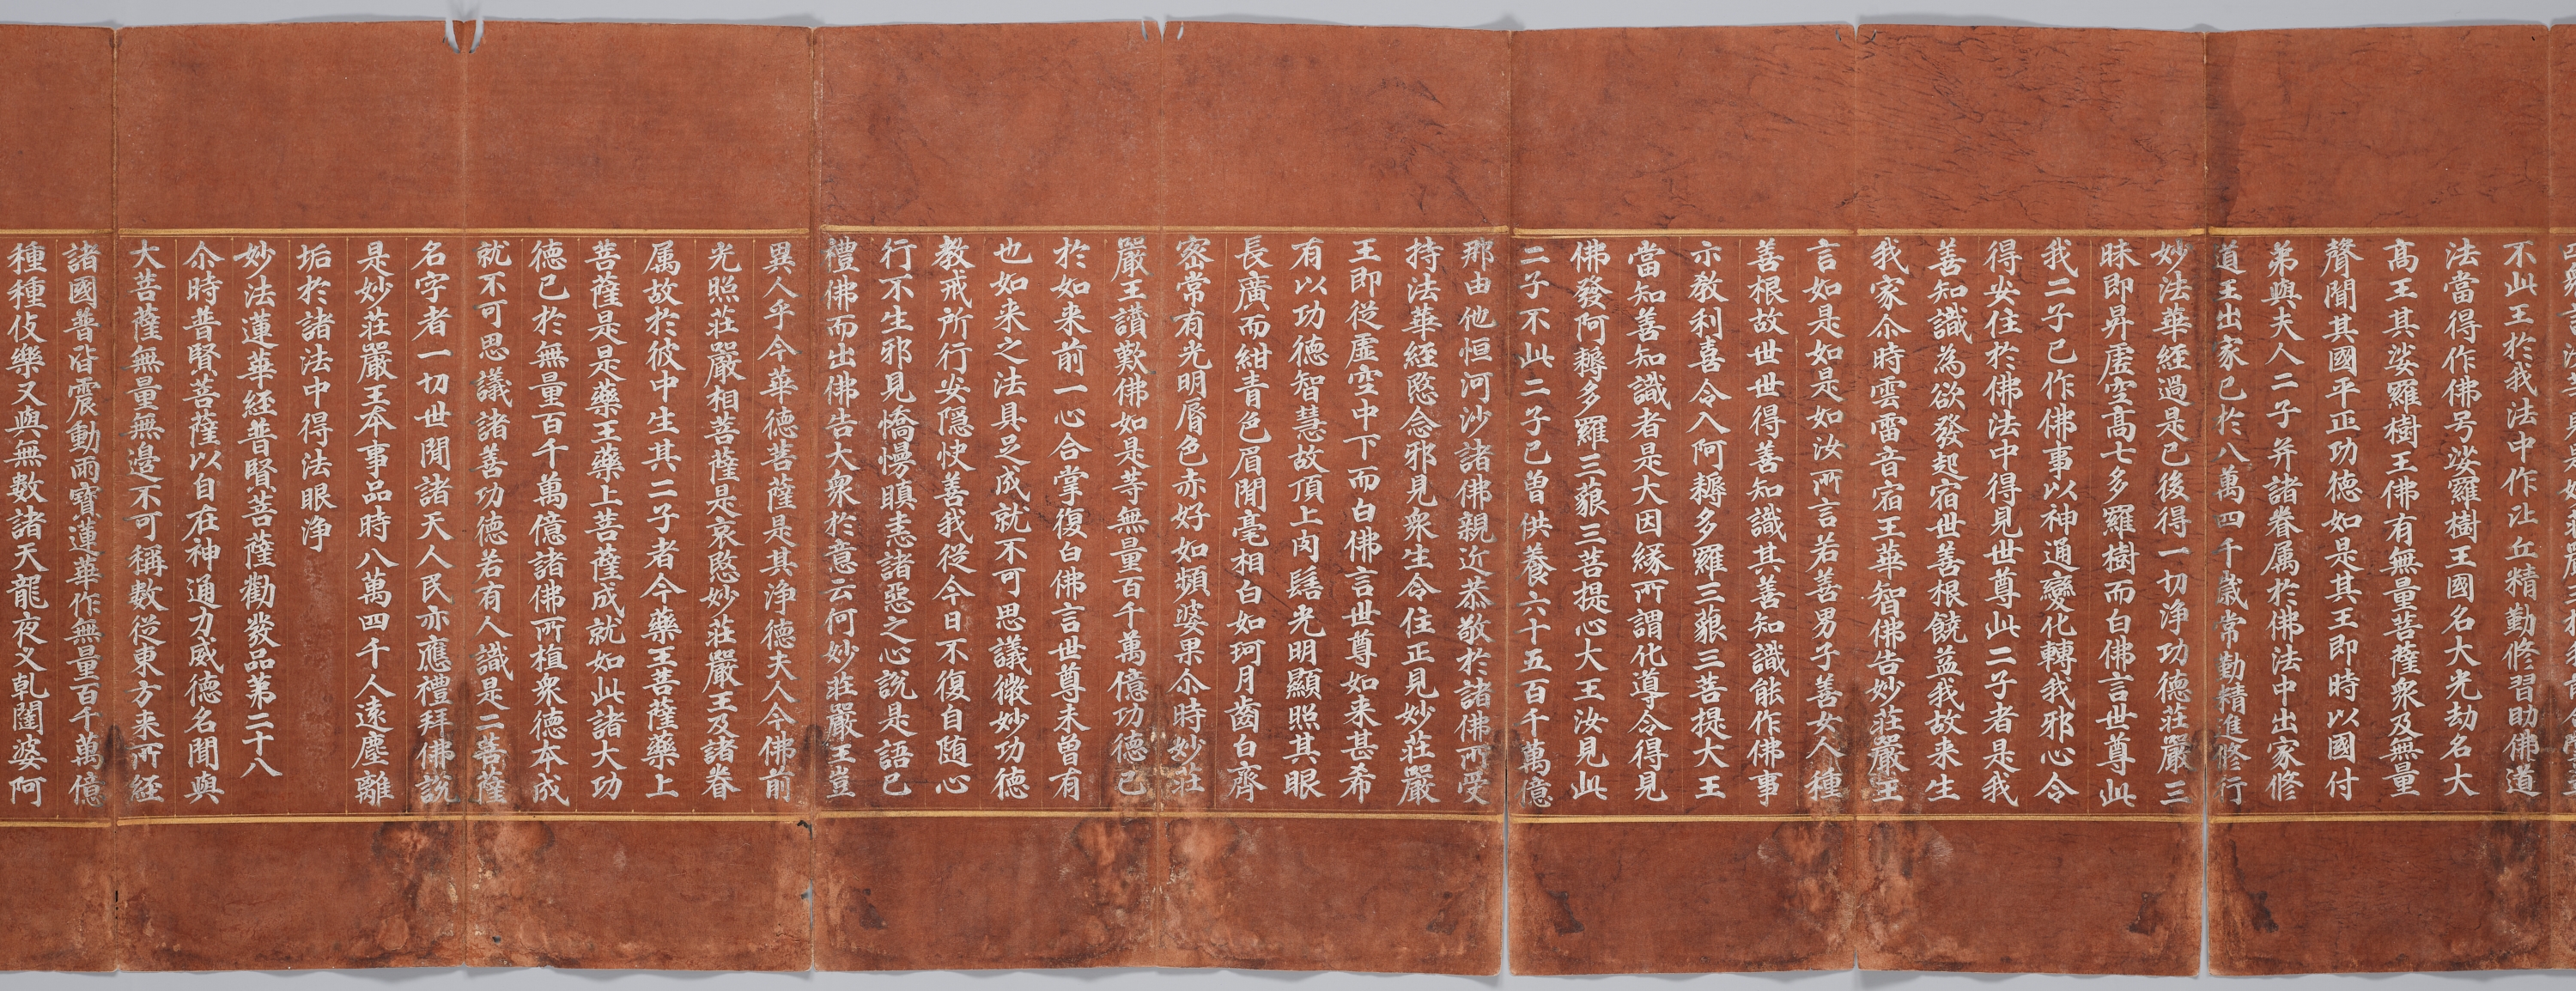 不此王於我法中作比丘精勤修習助佛道
法當得作佛号娑羅樹王國名大光劫名大
高王其娑羅樹王佛有無量菩薩衆及無量
聲聞其國平正功德如是其王即時以國付
弟與夫人二子并諸眷属於佛法中出家修
道王出家已於八萬四千歲常勤精進修行
妙法華経過是已後得一切淨功德莊嚴三
昧即昇虛空高七多羅樹而白佛言世尊此
我二子已作佛事以神通變化轉我邪心令
得安住於佛法中得見世尊此二子者是我
善知識為欲發起宿世善根饒益我故来生
我家尒時雲雷音宿王華智佛告妙莊嚴王
言如是如是如汝所言若善男子善女人種
善根故世世得善知識其善知識能作佛事
示教利喜令入阿耨多羅三藐三菩提大王
當知善知識者是大因縁所謂化導令得見
佛發阿耨多羅三藐三菩提心大王汝見此
二子不此二子已曽供養六十五百千萬億
那由他恒河沙諸佛親近恭敬於諸佛所受
持法華経愍念邪見衆生令住正見妙莊嚴
王即從虛空中下而白佛言世尊如来甚希
有以功德智慧故頂上肉髻光明顯照其眼
長廣而紺青色眉間毫相白如珂月齒白齊
密常有光明脣色赤好如頻婆果尒時妙莊
嚴王讚歎佛如是等無量百千萬億功德已
於如来前一心合掌復白佛言世尊未曽有
也如来之法具足成就不可思議微妙功德
教戒所行安隠快善我從今日不復自随心
行不生邪見憍慢瞋恚諸惡之心說是語已
禮佛而出佛告大衆於意云何妙莊嚴王豈
異人乎今華德菩薩是其淨德夫人今佛前
光照莊嚴相菩薩是哀愍妙莊嚴王及諸眷
属故於彼中生其二子者今藥王菩薩藥上
菩薩是是藥王藥上菩薩成就如此諸大功
德已於無量百千萬億諸佛所植衆德本成
就不可思議諸善功德若有人識是二菩薩
名字者一切世間諸天人民亦應禮拜佛說
是妙莊嚴王本事品時八萬四千人遠塵離
垢於諸法中得法眼淨
妙法蓮華経普賢菩薩勸發品第二十八
尒時普賢菩薩以自在神通力威德名聞與
大菩薩無量無邊不可稱數從東方来所経
諸國普皆震動雨寶蓮華作無量百千萬億
種種伎樂又與無数諸天龍夜叉乹闥婆阿